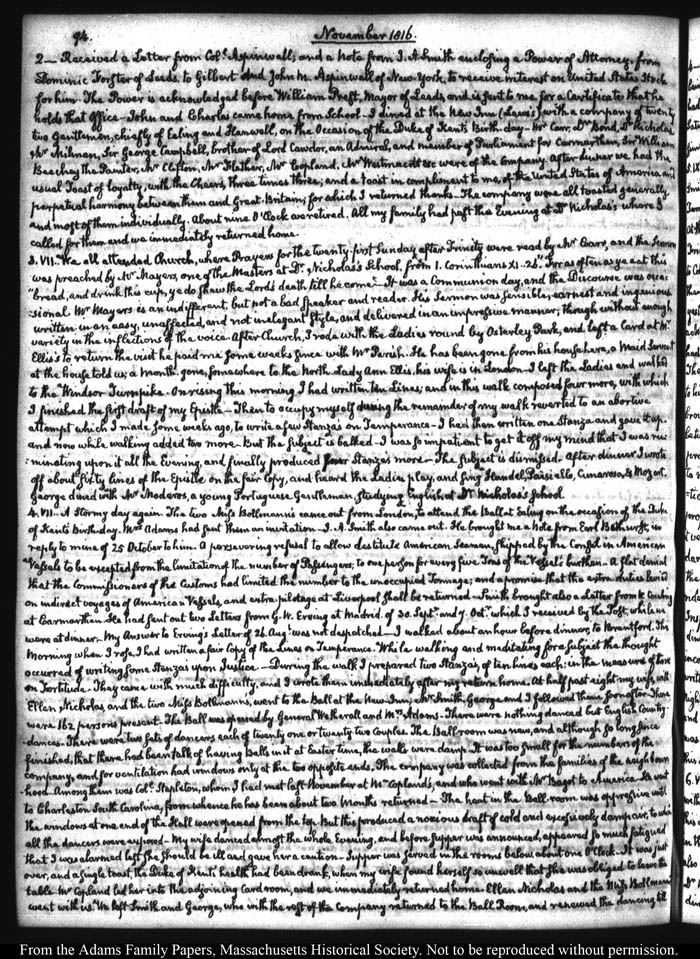 94.
November 1816.
2— Received a Letter from Col. Aspinwall; and a Note from J. A. Smith enclosing a Power of Attorney, from
Dominic Forster of Leeds, to Gilbert and John M. Aspinwall of New-York, to receive interest on United States Stock
for him. The Power is acknowledged before William Prest, Mayor of Leeds, and is sent to me for a Certificate that he
holds that Office— John and Charles came home from School— I dined at the New Inn (Lewis's) with a company of twenty
two Gentlemen, chiefly of Ealing and Hanwell, on the Occasion of the Duke of Kent's Birth-day— Mr Carr, Dr Bond, Dr Nicholas
Mr Milman, Sir George Campbell, brother of Lord Cawdor, an Admiral, and member of Parliament for Carmarthen, Sir William
Beechey the Painter, Mr Clifton, Mr Flether, Mr Copland, Mr Westmacott &c were of the Company. After dinner we had the
usual Toast of loyalty, with the Cheers, three times three; and a toast in compliment to me, of the United States of America and
perpetual harmony between them and Great-Britain; for which I returned thanks— The company were all toasted generally,
and most of them individually. About nine O'Clock we retired. All my family had past the Evening at Dr Nicholas's where I
called for them and we immediately returned home.
3. VII. We all attended Church, where Prayers for the twenty first Sunday after Trinity were read by Mr Carr, and the Sermon
was preached by Mr Mayers, one of the Masters at Dr. Nicholas's School, from 1. Corinthians XI. 26. "For as often as ye eat this
"bread, and drink this cup, ye do shew the Lord's death till he come"— It was a Communion day, and the Discourse was occa
:sional. Mr Mayers is an indifferent, but not a bad speaker and reader. His Sermon was sensible, earnest and ingenious
written in an easy, unaffected, and not inelegant style, and delivered in an impressive manner; though without enough
variety in the inflections of the voice. After Church, I rode with the Ladies round by Osterley Park, and left a Card at Mr
Ellis's to return the visit he paid me some weeks since with Mr Parish. He has been gone from his house here, a Maid Servant
at the house told us, a month. gone, somewhere to the North. Lady Ann Ellis, his wife is in London— I left the Ladies and walked
to the Windsor Turnpike. On rising this morning I had written ten Lines; and in this walk composed four more, with which
I finished the first draft of my Epistle— Then to occupy myself during the remainder of my walk reverted to an abortive
attempt which I made some weeks ago, to write a few Stanza's on Temperance— I had then written one Stanza and gave it up.
and now while walking added two more— But the subject is balked— I was so impatient to get it off my mind that I was ru
:minating upon it all the Evening, and finally produced four Stanza's more— The subject is dismissed— After dinner I wrote
off about sixty lines of the Epistle on the fair Copy, and heard the Ladies play, and sing Handel, Paisiello, Cimarosa, & Mozart.
George dined with Mr Medeiros, a young Portuguese Gentleman, studying English at Dr Nicholas's School.
4. VII. A stormy day again. The two Miss Bollmann's came out from London, to attend the Ball at Ealing on the occasion of the Duke
of Kent's Birthday. Mrs Adams had sent them an invitation— J. A. Smith also came out. He brought me a Note from Earl Bathurst, in
reply to mine of 25 October to him. A persevering refusal to allow destitute American Seamen, shipped by the Consul in American
Vessels to be excepted from the limitation of the number of Passengers, to one person for every five Tons of the Vessel's burthen. A flat denial
that the Commissioners of the Customs had limited the number to the unoccupied Tonnage; and a promise that the extra duties levied
on indirect voyages of American Vessels, and extra-pilotage at Liverpool shall be returned— Smith brought also a Letter from
at Carmarthen. He had sent out two Letters from G. W. Erving at Madrid, of 30. Septr and 7. Octr. which I received by the Post, while we
were at dinner. My Answer to Erving's Letter of 26. Augt was not despatched— I walked about an hour before dinner, to Brentford. This
Morning when I rose, I had written a fair Copy of the Lines on Temperance. While walking and meditating for a subject the thought
occurred of writing some Stanzas upon Justice— During the walk I prepared two Stanza's of ten lines each; in the measure of those
on Fortitude. They came with much difficulty, and I wrote them immediately after my return home. At half past eight my wife, with
Ellen Nicholas, and the two Miss Bollmanns, went to the Ball at the New-Inn; Mr Smith, George and I followed them soon after. There
were 162 persons present. The Ball was opened by General Wetherall and Mrs Adams. There were nothing danced but English Country-
dances. There were two sets of dancers each of twenty one or twenty two Couples. The Ball room was new, and although so long since
finished, that there had been talk of having Balls in it at Easter time, the walls were damp. It was too small for the numbers of the
company, and for ventilation had windows only at the two opposite ends. The company was collected from the families of the neighbour
:hood. Among them was Col. Stapleton, whom I had met last November at Mr Copland's, and who went with Mr Bagot to America— He went
to Charleston South Carolina, from whence he has been about two Months returned— The heat in the Ball-room was oppressive until
the windows at one end of the Hall were opened from the top. But this produced a noxious draft of cold and excessively damp air, to which
all the dancers were exposed— My wife danced almost the whole Evening, and before supper was announced, appeared so much fatigued
that I was alarmed lest she should be ill and gave her a caution— Supper was served in the rooms below, about one O'Clock. It was just
over, and a single toast, the Duke of Kent's health had been drank, when my wife found herself so unwell that she was obliged to leave the
table. Mr Copland led her into the adjoining Card room, and we immediately returned home. Ellen Nicholas and the Miss Bollmanns
went with us. We left Smith and George, who with the rest of the Company returned to the Ball Room, and renewed the dancing till
From the Adams Family Papers, Massachusetts Historical Society. Not to be reproduced without permission.